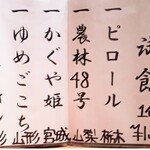 試食
一ピロール
栃木
一農林48号
山梨
一かぐや姫
宮城
一ゆめごこち
山形